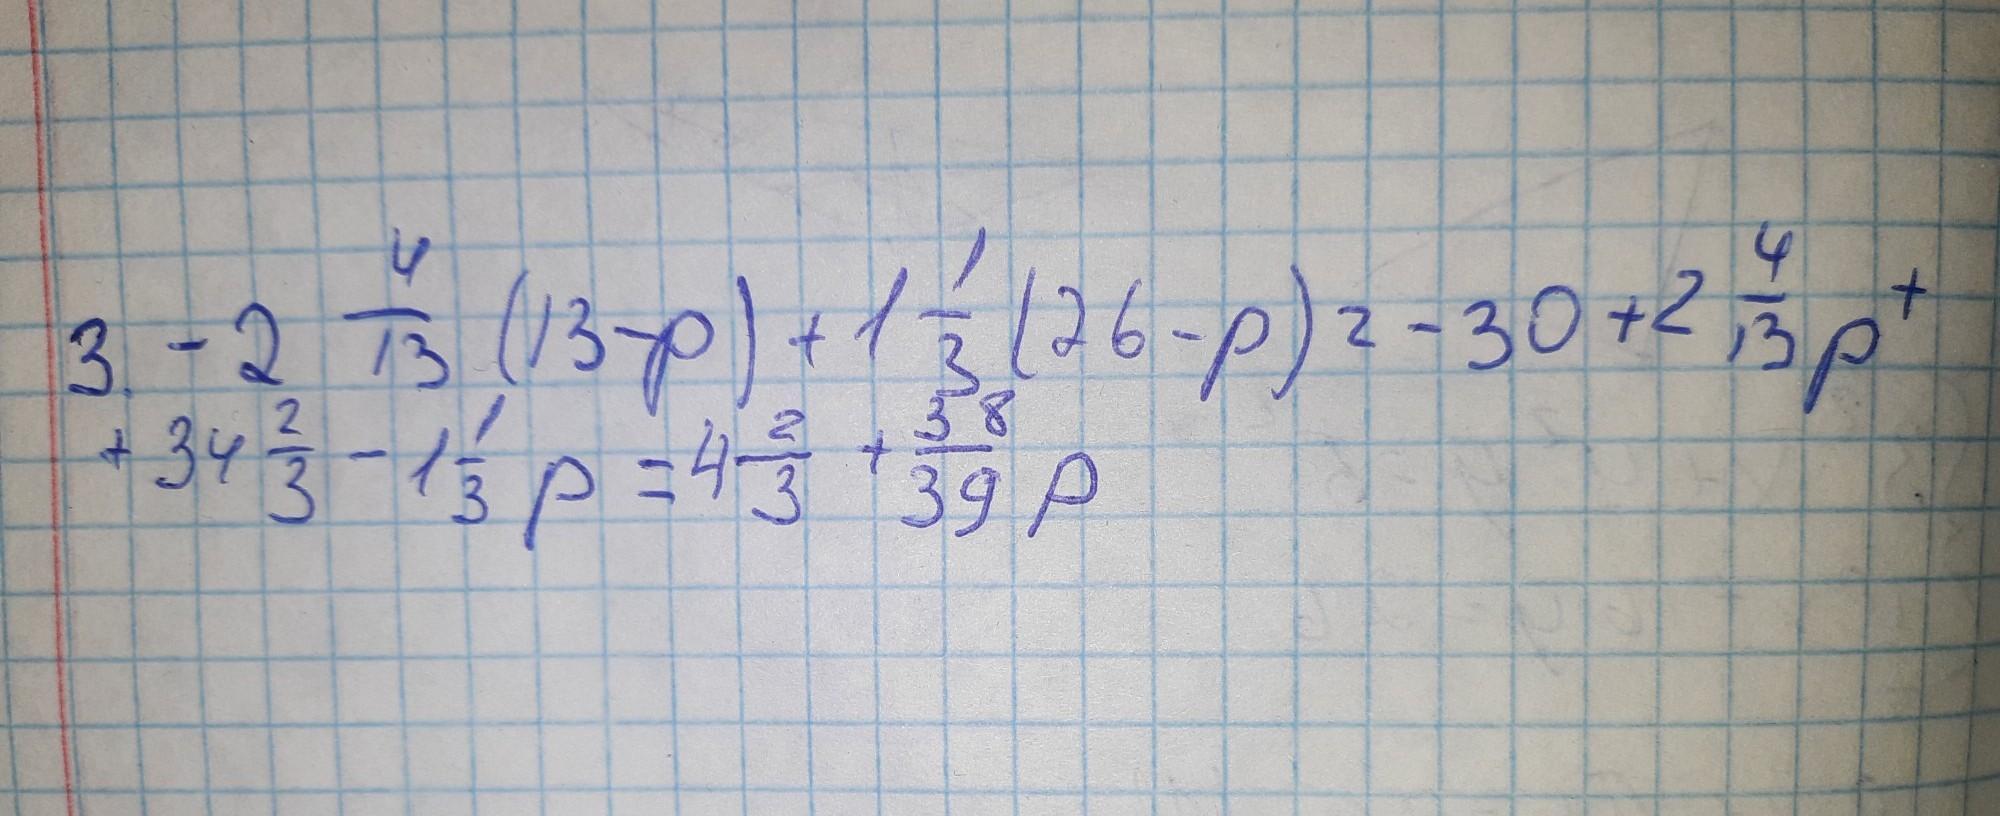 3. -2 4/13 (13-p) + 1 1/3 (26-p) = -30 + 2 4/13 p +
+ 34 2/3 - 1 1/3 p = 4 2/3 + 38/39 p